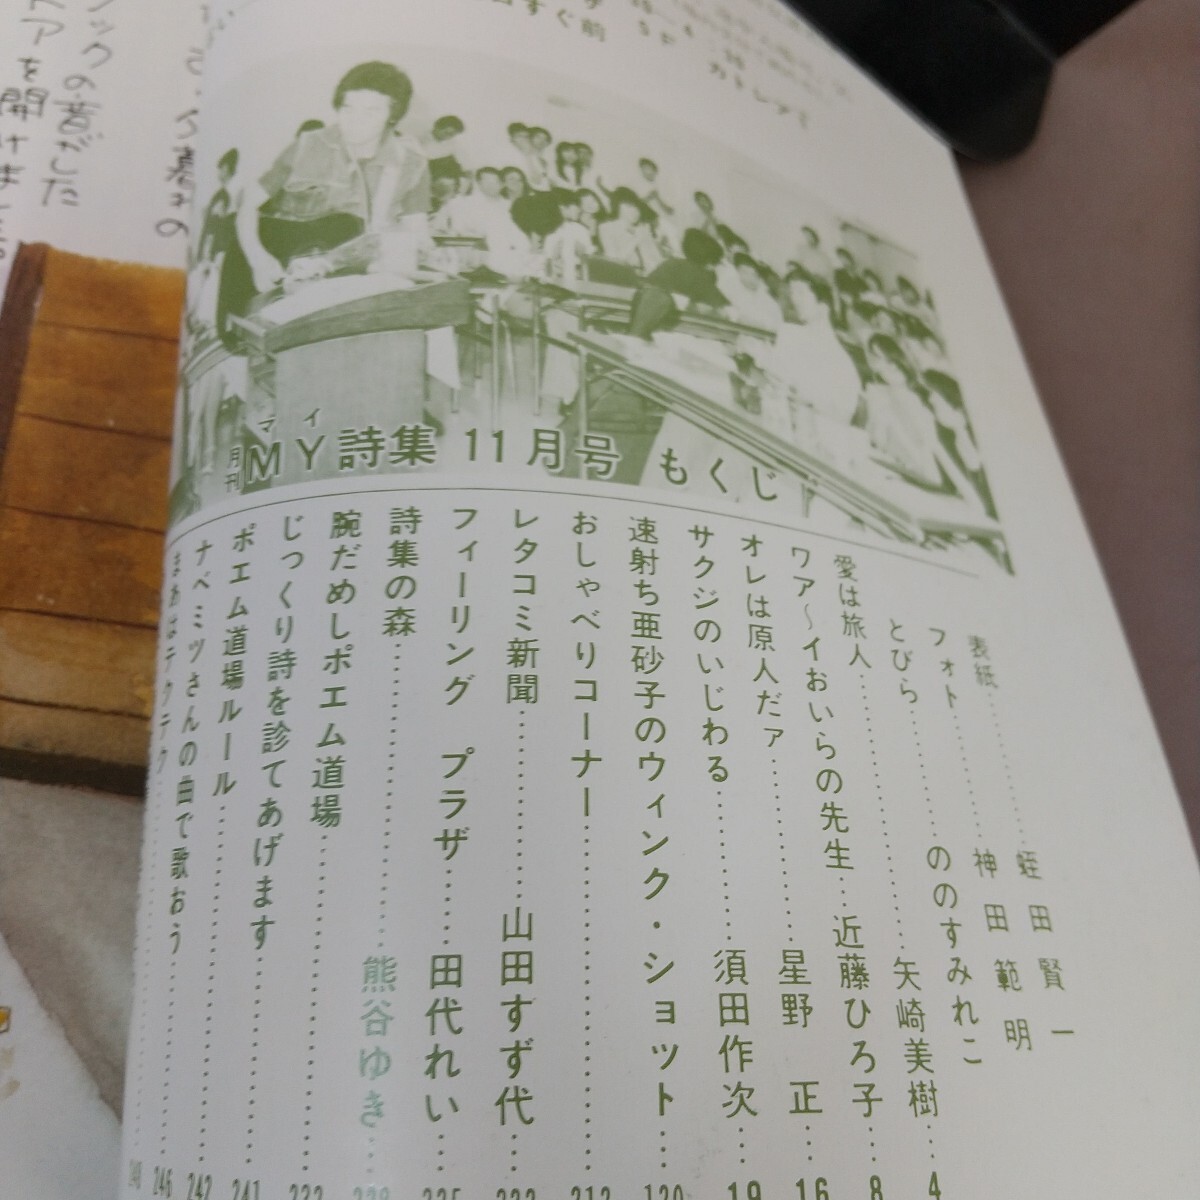 カトレアミ
すぐ前
マイ
月刊 MY詩集 11月号 もくじ
表紙……蛭田賢一
フォト……神田範明
とびら……ののすみれこ
愛は旅人……矢崎美樹…4
ワア〜イおいらの先生…近藤ひろ子…8
オレは原人だァ……星野 正…16
サクジのいじわる……須田作次…19
速射ち亜砂子のウィンク・ショット…120
おしゃべりコーナー……212
レタコミ新聞……山田すず代…222
フィーリング プラザ……田代れい…225
詩集の森……熊谷ゆき…229
腕だめしポエム道場……232
じっくり詩を診てあげます……241
ポエム道場ルール……242
ナベミツさんの曲で歌おう……246
まあはテクテク……248
ックの音がした
アを開けま